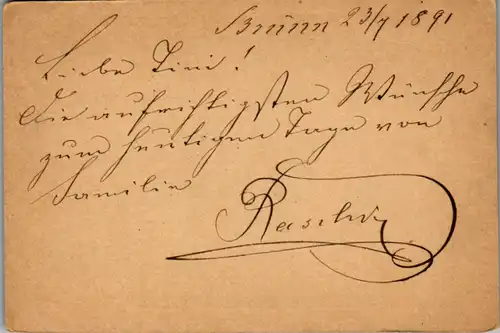 Brünn 23/7 1891
Liebe Tini!
Die aufrichtigsten Wünsche
zum heutigen Tage von
Familie